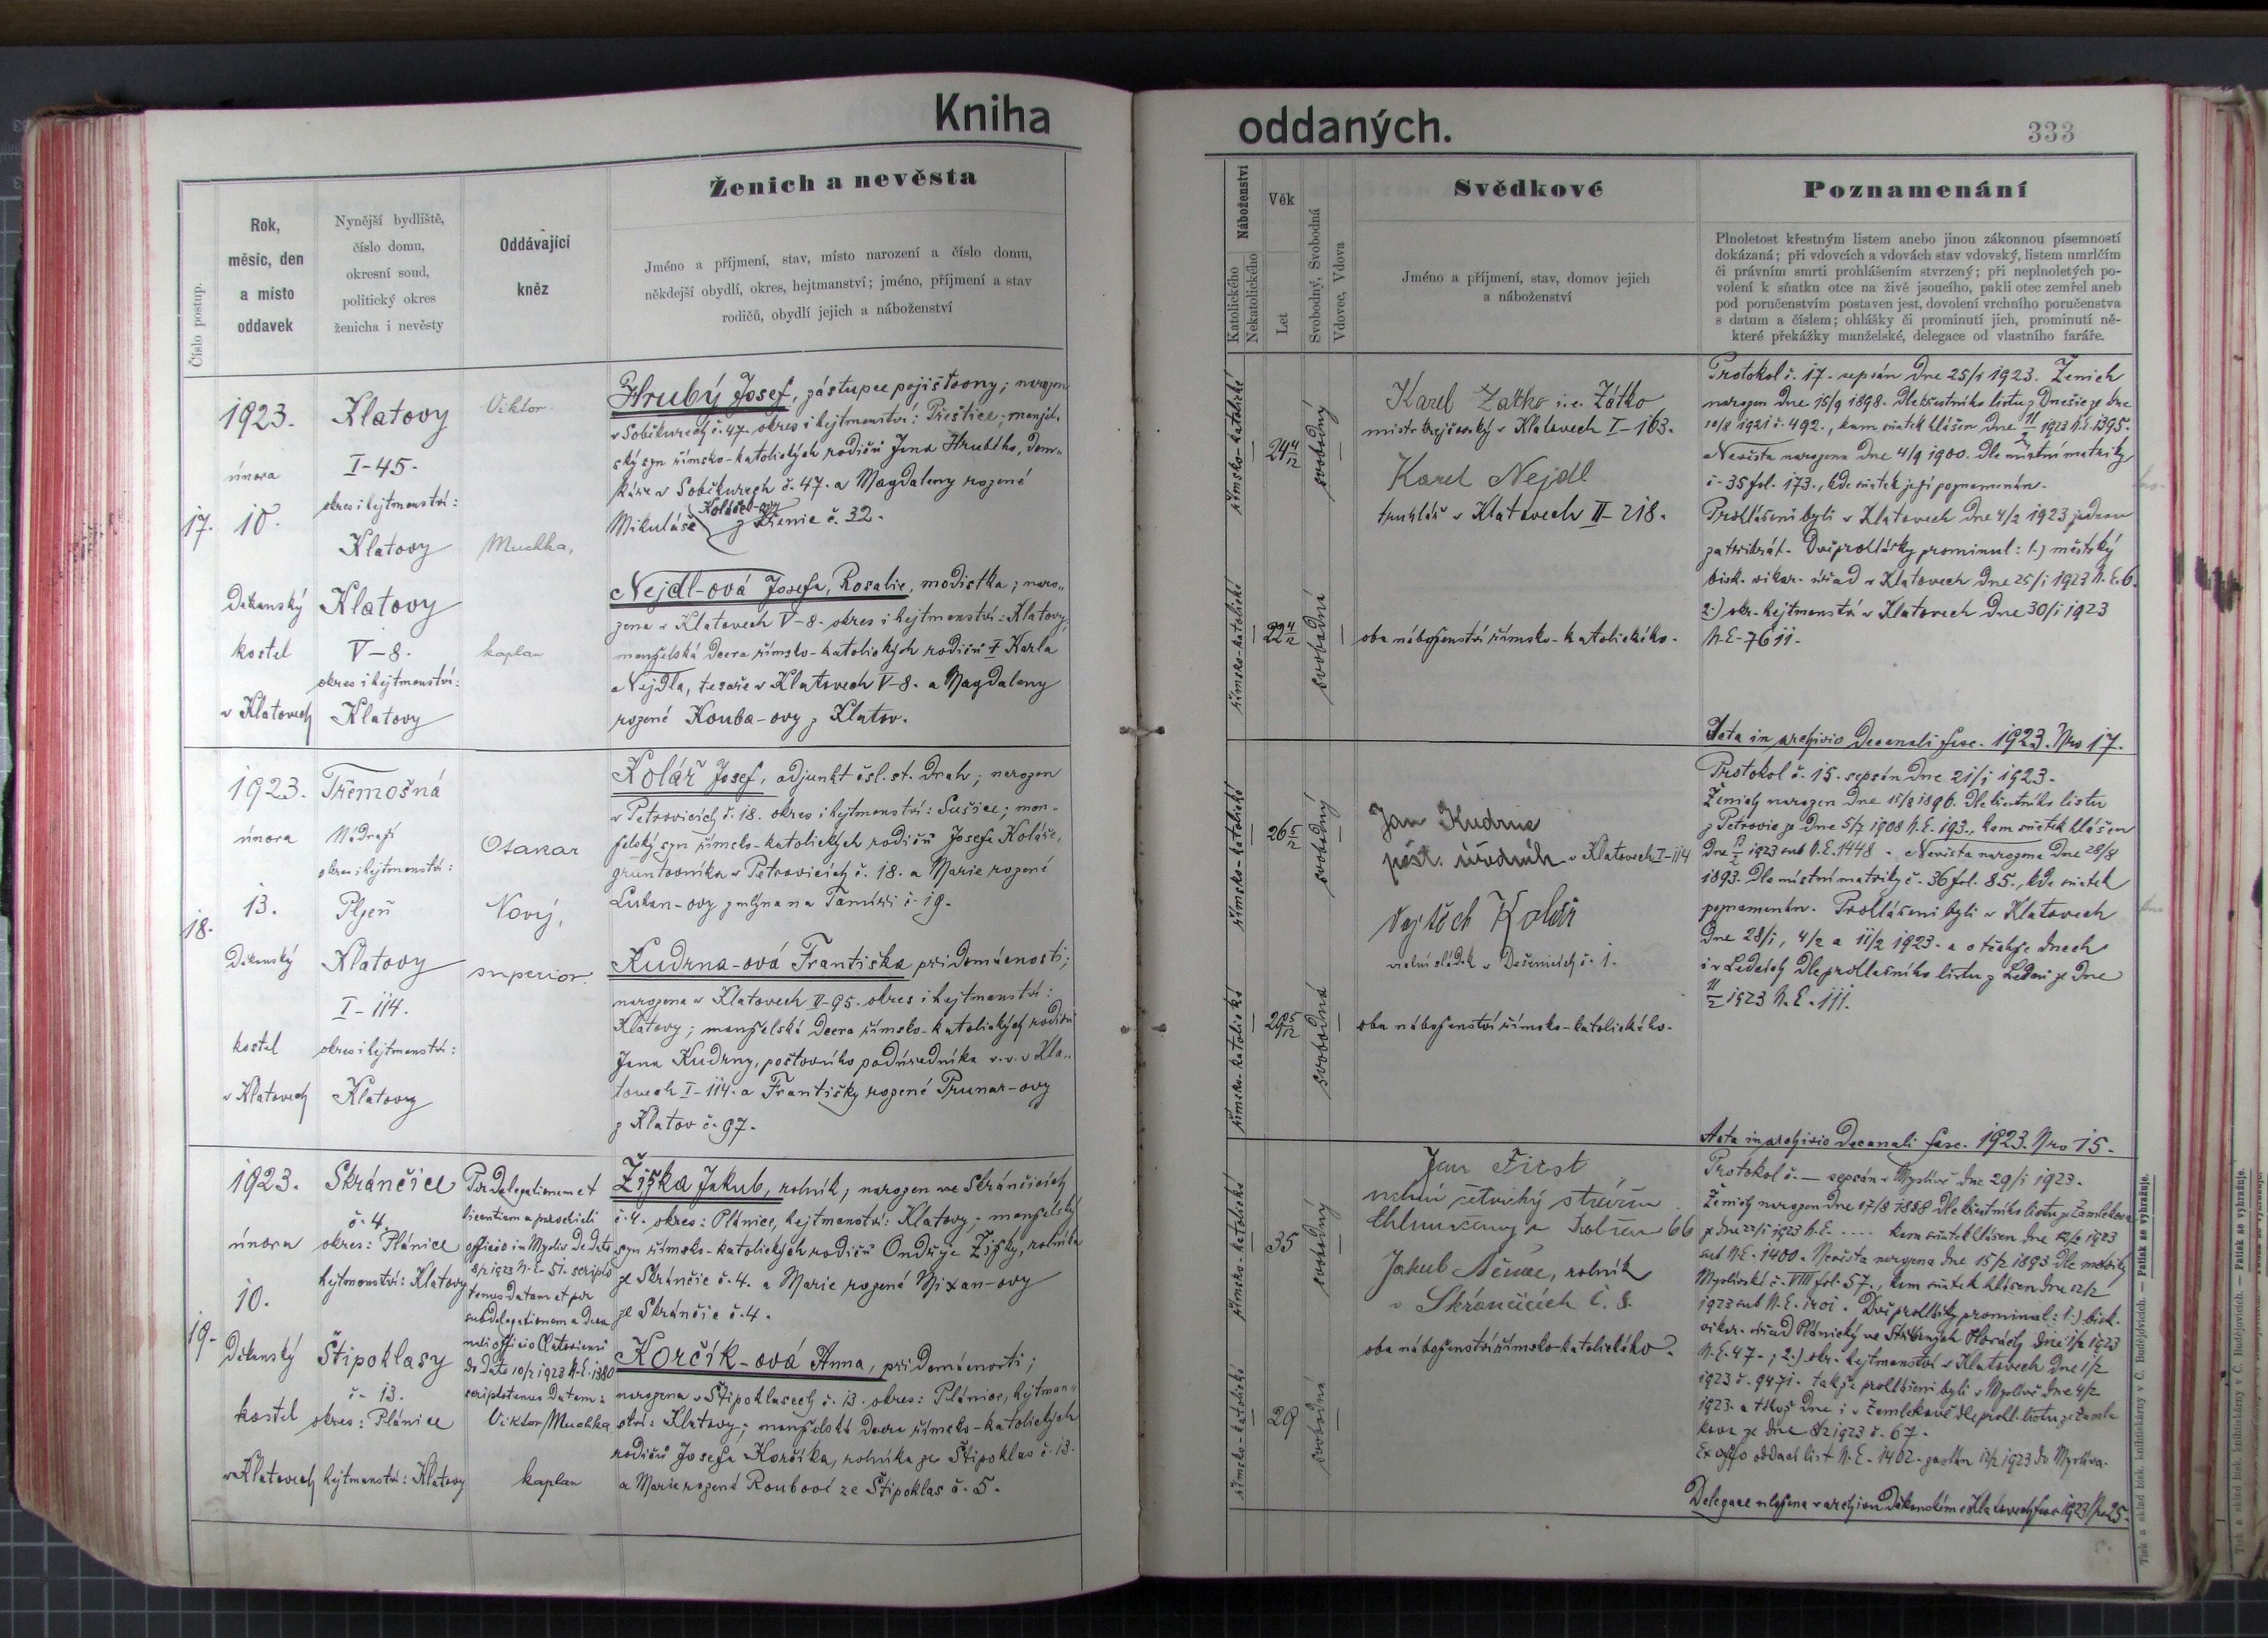 Kniha
oddaných.
333
Číslo postup.
Rok,
měsíc, den
a místo
oddavek
Nynější bydliště,
číslo domu,
okresní soud,
politický okres
ženicha i nevěsty
Oddávající
kněz
Ženich a nevěsta
Jméno a příjmení, stav, místo narození a číslo domu,
někdejší obydlí, okres, hejtmanství; jméno, příjmení a stav
rodičů, obydlí jejich a náboženství
Náboženství
Katolického
Nekatolického
Věk
Let
Svobodný, Svobodná
Vdovec, Vdova
Svědkové
Jméno a příjmení, stav, domov jejich
a náboženství
Poznamenání
Plnoletost křestným listem anebo jinou zákonnou písemností
dokázaná; při vdovcích a vdovách stav vdovský, listem umrlčím
či právním smrti prohlášením stvrzený; při neplnoletých po-
volení k sňatku otce na živě jsoucího, pakli otec zemřel aneb
pod poručenstvím postaven jest, dovolení vrchního poručenstva
s datum a číslem; ohlášky či prominutí jich, prominutí ně-
které překážky manželské, delegace od vlastního faráře.
17.
1923.
února
10.
Děkanský
kostel
v Klatovech
Klatovy
I-45.
okres i hejtmanství:
Klatovy
Klatovy
V-8.
okres i hejtmanství:
Klatovy
Viktor
Muchka,
kaplan
Hrubý Josef, zástupce pojišťovny; narozen
v Soběkurech č. 47. okres i hejtmanství: Přeštice; manžel-
ský syn římsko-katolických rodičů Jana Hrubého, dom-
káře v Soběkurech č. 47. a Magdaleny rozené
Mikuláše
č. 32.
Nejdl-ová Josefa, Rosalie, modistka; naro-
zena v Klatovech V-8. okres i hejtmanství: Klatovy;
manželská dcera římsko-katolických rodičů † Karla
Nejdla, tesaře v Klatovech V-8. a Magdaleny
rozené Kouba-ovy z Klatov.
římsko-katolické
24 4/12
svobodný
římsko-katolické
22 4/12
svobodná
Karel Zatko i.e. Zátko
mistr krejčovský v Klatovech I-163.
Karel Nejdl
truhlář v Klatovech II-218.
oba náboženství římsko-katolického.
Protokol č. 17. sepsán dne 25/1 1923. Ženich
narozen dne 15/9 1898. dle křestního listu z Dnešic ze dne
10/8 1921 č. 492., kam sňatek hlášen dne 11/2 1923 N.E. 1395.
Nevěsta narozena dne 4/9 1900. dle místní matriky
č. 35 fol. 173., kde sňatek její poznamenán.
Prohlášeni byli v Klatovech dne 4/2 1923 jednou
za třikrát. Dvě prohlášky prominul: 1.) městský
bisk. vikar. úřad v Klatovech dne 25/1 1923 N.E. 6.
2.) okr. hejtmanství v Klatovech dne 30/1 1923
N.E. 7611.
Acta in archivio decanali fasc. 1923. Nro 17.
18.
1923.
února
13.
Děkanský
kostel
v Klatovech
Třemošná
Nádraží
okres i hejtmanství:
Plzeň
Klatovy
I-114.
okres i hejtmanství:
Klatovy
Otakar
Nový,
superior.
Kolář Josef, adjunkt čsl. st. drah; narozen
v Petrovicích č. 18. okres i hejtmanství: Sušice; man-
želský syn římsko-katolických rodičů Josefa Koláře,
gruntovníka v Petrovicích č. 18. a Marie rozené
Lukan-ovy z mlýna na
č. 19.
Kudrna-ová Františka při domácnosti;
narozena v Klatovech II-95. okres i hejtmanství:
Klatovy; manželská dcera římsko-katolických rodičů
Jana Kudrny, poštovního podúředníka v. v. v Kla-
tovech I-114. a Františky rozené Prunar-ovy
z Klatov č. 97.
římsko-katolické
26 5/12
svobodný
římsko-katolické
29 5/12
svobodná
Jan Kudrna
pošt. úředník v Klatovech I-114
Vojtěch Kolář
sládek v Dešenicích č. 1.
oba náboženství římsko-katolického.
Protokol č. 15. sepsán dne 21/1 1923.
Ženich narozen dne 15/8 1896. dle křestního listu
z Petrovic ze dne 5/7 1908 N.E. 193., kam sňatek hlášen
dne 13/2 1923 sub N.E. 1448. Nevěsta narozena dne 28/8
1893. dle místní matriky č. 36 fol. 85., kde sňatek
poznamenán. Prohlášeni byli v Klatovech
dne 28/1, 4/2 a 11/2 1923. a o těchže dnech
i v Ledcích dle prohlašního listu z Ledec ze dne
11/2 1923 N.E. 111.
Acta in archivio decanali fasc. 1923. Nro 15.
19.
1923.
února
10.
Děkanský
kostel
v Klatovech
Skránčice
č. 4.
okres: Plánice
hejtmanství: Klatovy
Štipoklasy
č. 13.
okres: Plánice
hejtmanství: Klatovy
Per delegationem et
licentiam a parochiali
officio in Mysliv de dato
8/2 1923 N.E. 51. scripto
tenus datam et per
subdelegationem a deca
nali officio Clatoviensi
de dato 10/2 1923 N.E. 1380
scriptotenus datam:
Viktor Muchka
kaplan
Žižka Jakub, rolník; narozen ve Skránčicích
č. 4. okres: Plánice, hejtmanství: Klatovy; manželský
syn římsko-katolických rodičů Ondřeje Žižky, rolníka
ze Skránčic č. 4. a Marie rozené
ze Skránčic č. 4.
Korčík-ová Anna, při domácnosti;
narozena v Štipoklasech č. 13. okres: Plánice, hejtman-
ství: Klatovy; manželská dcera římsko-katolických
rodičů Josefa Korčíka, rolníka ze Štipoklas č. 13.
a Marie rozené Roubové ze Štipoklas č. 5.
římsko-katolické
35
svobodný
římsko-katolické
29
svobodná
Jan
četnický
66
Jakub Němec, rolník
v Skránčicích č. 8.
oba náboženství římsko-katolického.
Protokol č. — sepsán v Myslívě dne 29/1 1923.
Ženich narozen dne 17/8 1888 dle křestního listu ze Zamlekova
ze dne 22/1 1923 N.E. .... kam sňatek hlášen dne 12/2 1923
sub N.E. 1400. Nevěsta narozena dne 15/2 1893 dle matriky
Myslívské č. VIII fol. 57., kam sňatek hlášen dne 12/2
1923 sub N.E. 1401. Dvě prohlášky prominul: 1.) bisk.
vikar. úřad Plánický ve Stříbrných Horách dne 1/2 1923
N.E. 47.; 2.) okr. hejtmanství v Klatovech dne 1/2
1923 č. 9471. takže prohlášeni byli v Myslívě dne 4/2
1923. a téhož dne i v Zamlekově dle prohl. listu ze Zamle
kova ze dne 8/2 1923 č. 67.
Ex offo oddací list N.E. 1402. zaslán 12/2 1923 do Myslíva.
Delegace uložena v archivu děkanském v Klatovech fasc. 1923/Nro 25.
Tisk a sklad bisk. knihtiskárny v Č. Budějovicích. — Patisk se vyhražuje.